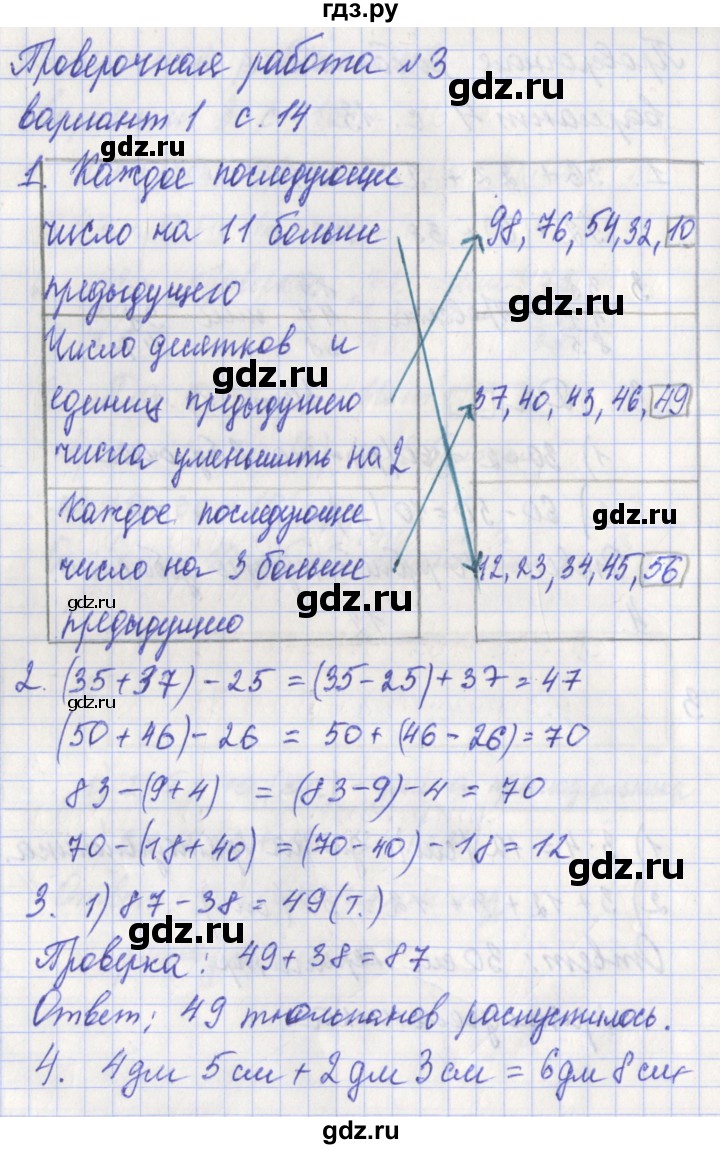 гдз.ру
Проверочная работа №3
вариант 1 с.14
1. Каждое последующее
число на 11 больше
предыдущего
98, 76, 54, 32, 10
Число десятков и
единиц предыдущего
числа уменьшить на 2
37, 40, 43, 46, 49
Каждое последующее
число на 3 больше
предыдущего
12, 23, 34, 45, 56
2. (35+37) - 25 = (35-25)+37 = 47
(50+46) - 26 = 50+(46-26) = 70
83-(9+4) = (83-9)-4 = 70
70-(18+40) = (70-40)-18 = 12
3. 1) 87-38 = 49 (т.)
Проверка: 49+38 = 87
Ответ: 49 тюльпанов распустилось.
4. 4дм 5см + 2дм 3см = 6дм 8см
gdz.ru
gdz.ru
gdz.ru
gdz.ru
gdz.ru
gdz.ru
gdz.ru
gdz.ru
gdz.ru
gdz.ru
gdz.ru
gdz.ru
gdz.ru